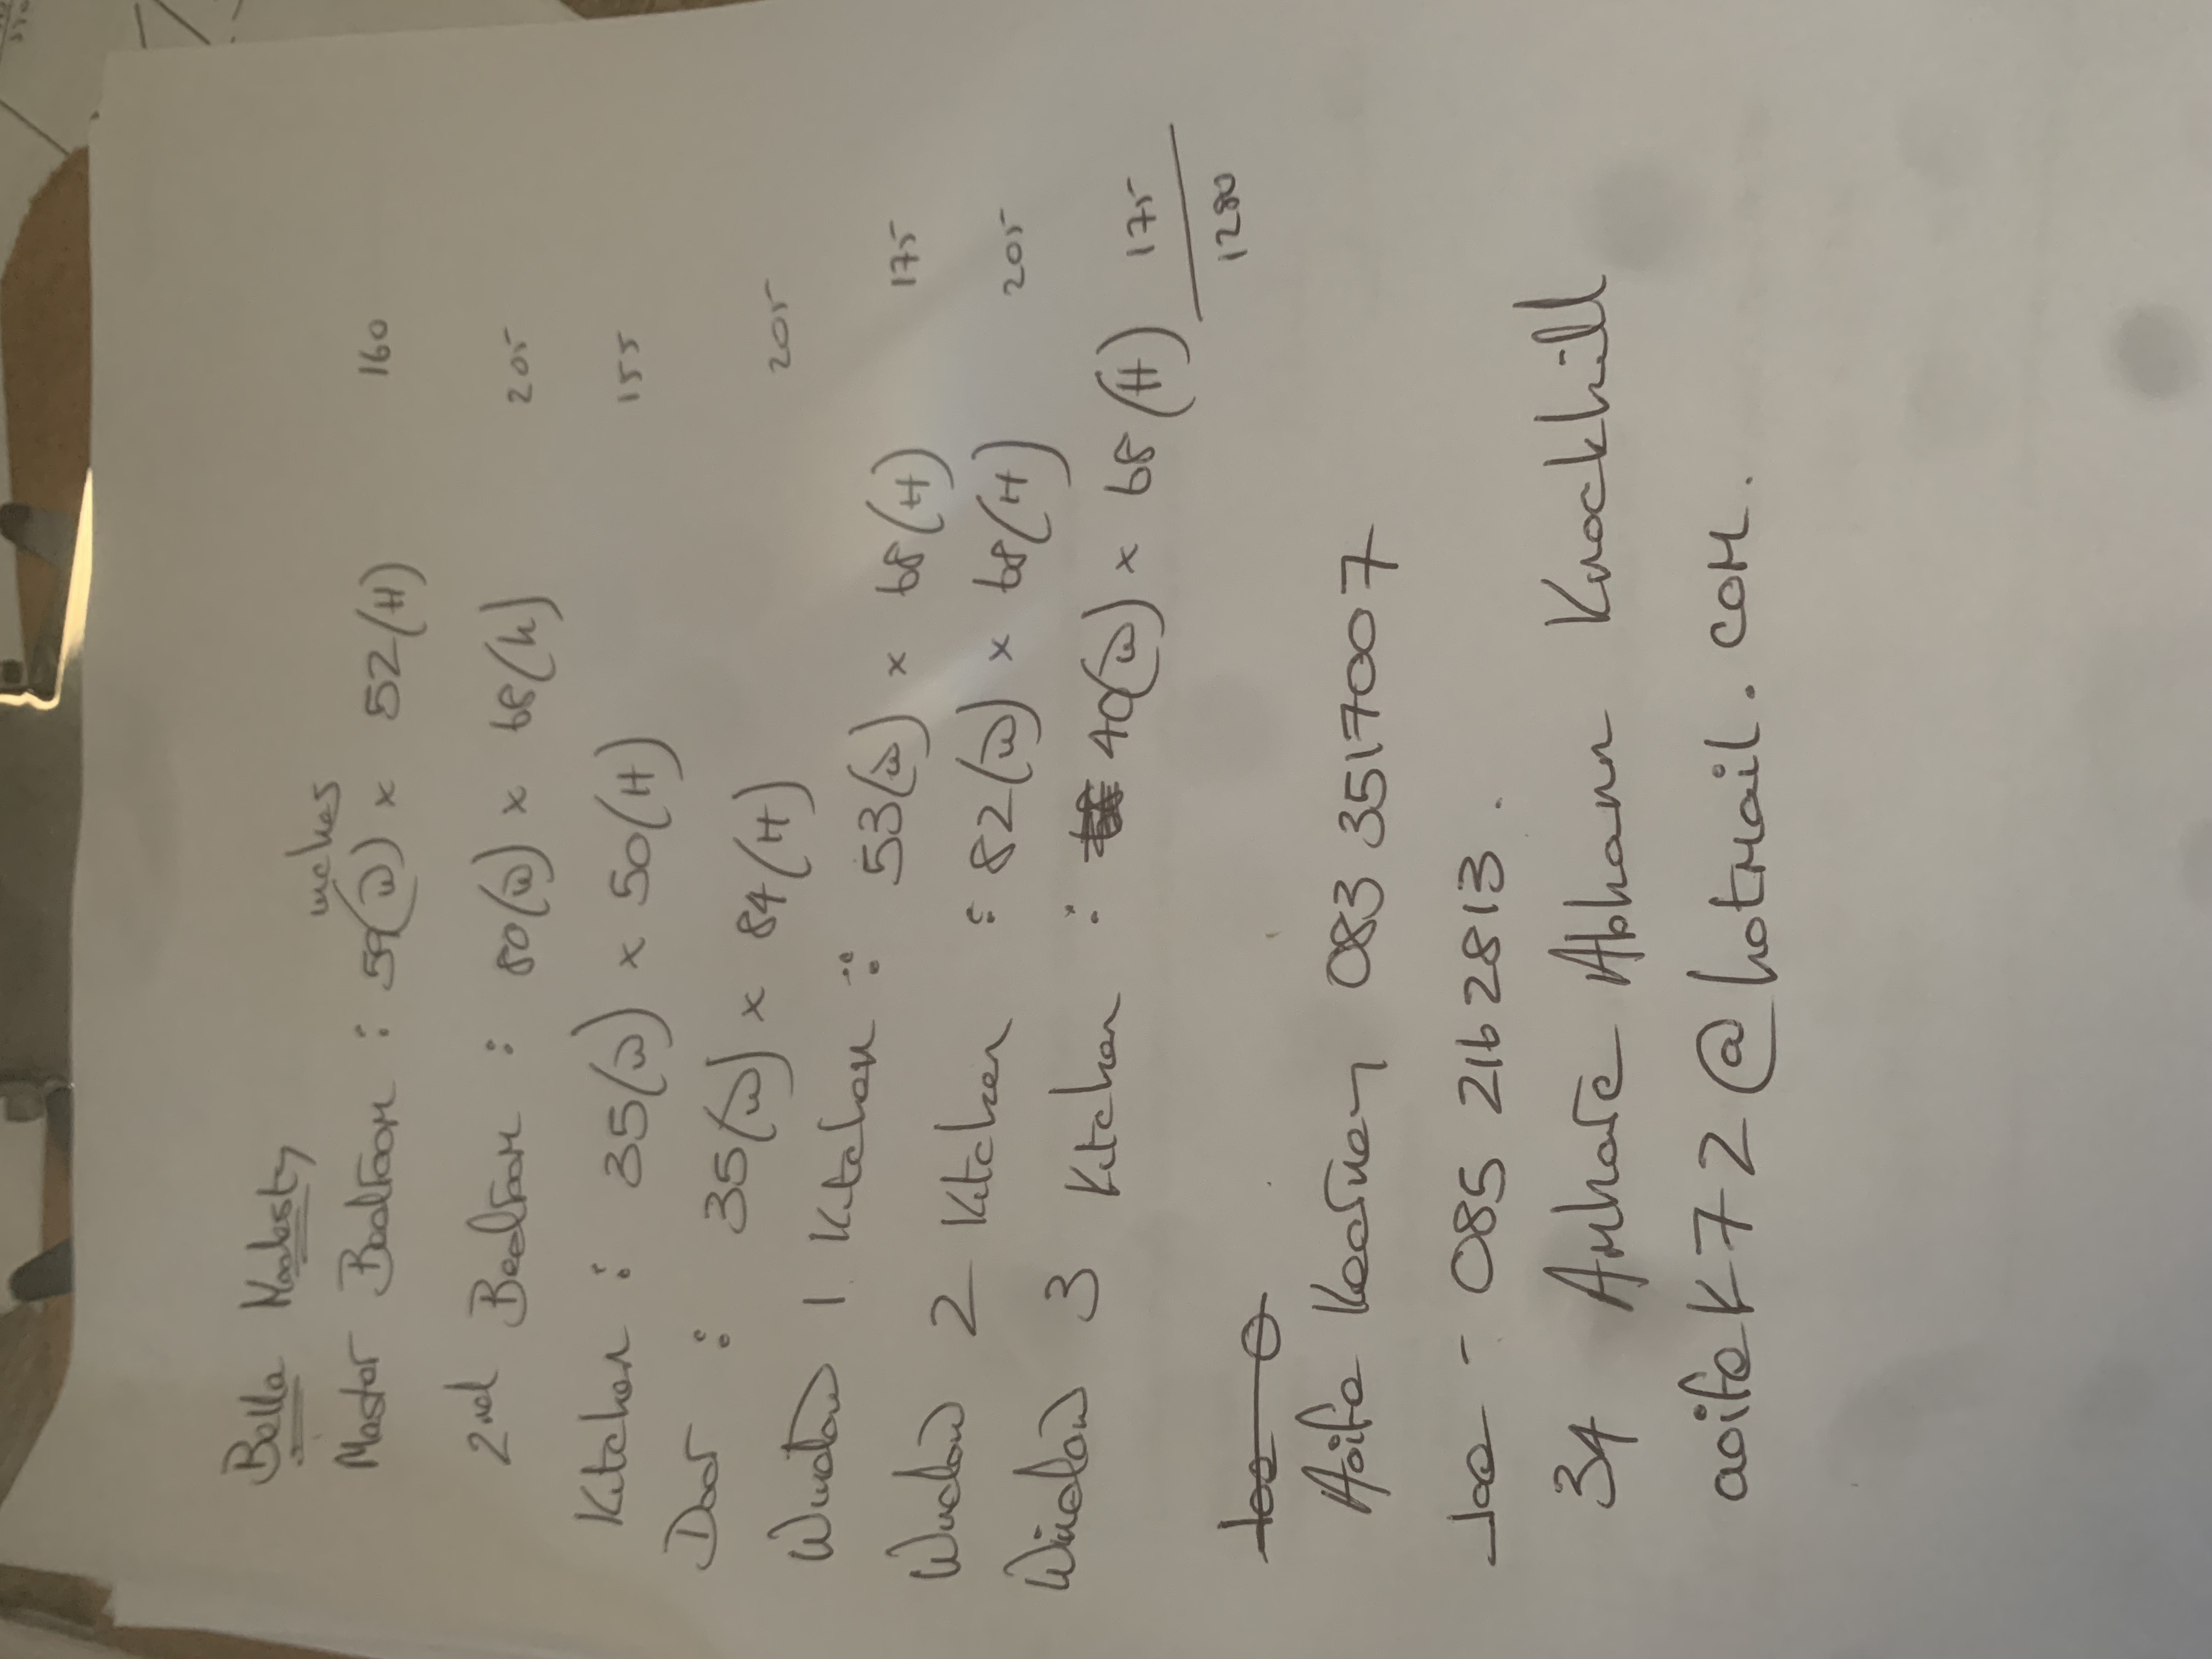 Bella Modesty
inches
Master Bedroom : 59(W) x 52(H) 160
2nd Bedroom : 80(W) x 68(h) 205
Kitchen : 35(W) x 50(H) 155
Door : 35(W) x 84(H) 205
Window 1 Kitchen : 53(W) x 68(H) 175
Window 2 Kitchen : 82(W) x 68(H) 205
Window 3 Kitchen : 40(W) x 68(H) 175
1280
Aoife Kearney 083 3517007
Joe - 085 2162813.
34 Amharc Abhann Knockhill
aoifek72@hotmail.com.